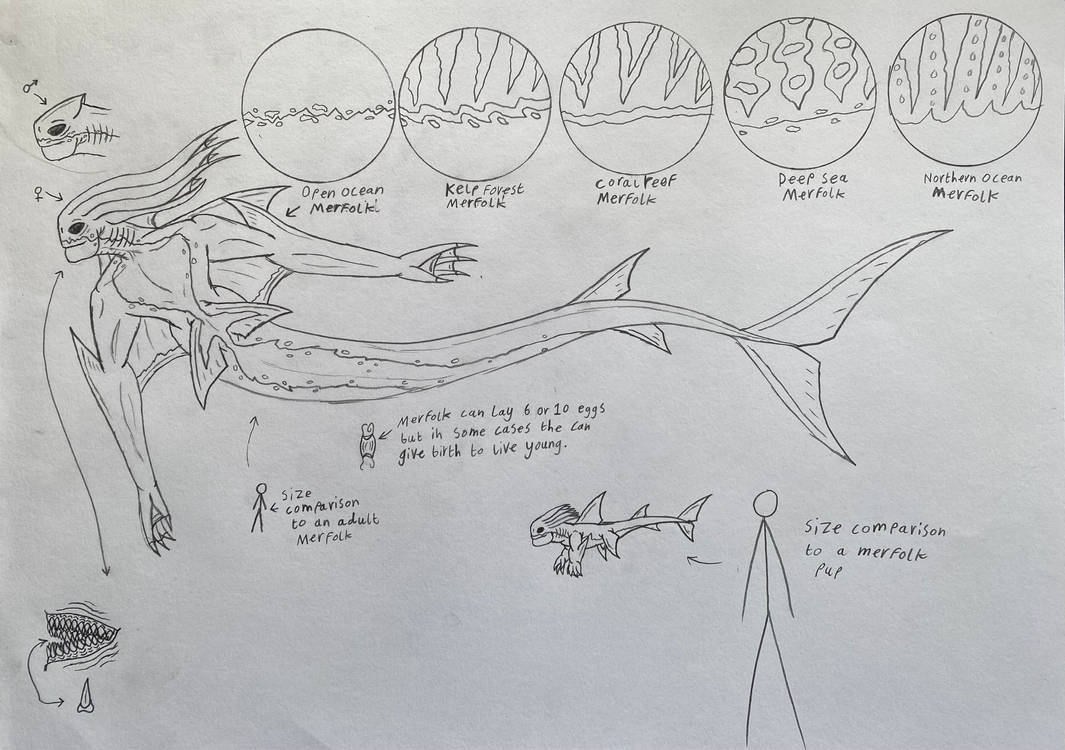 ♂
♀
Open Ocean
Merfolk
Kelp Forest
Merfolk
Coral Reef
Merfolk
Deep Sea
Merfolk
Northern Ocean
Merfolk
Merfolk can lay 6 or 10 eggs
but in some cases the can
give birth to live young.
Size
comparison
to an adult
Merfolk
Size comparison
to a merfolk
pup